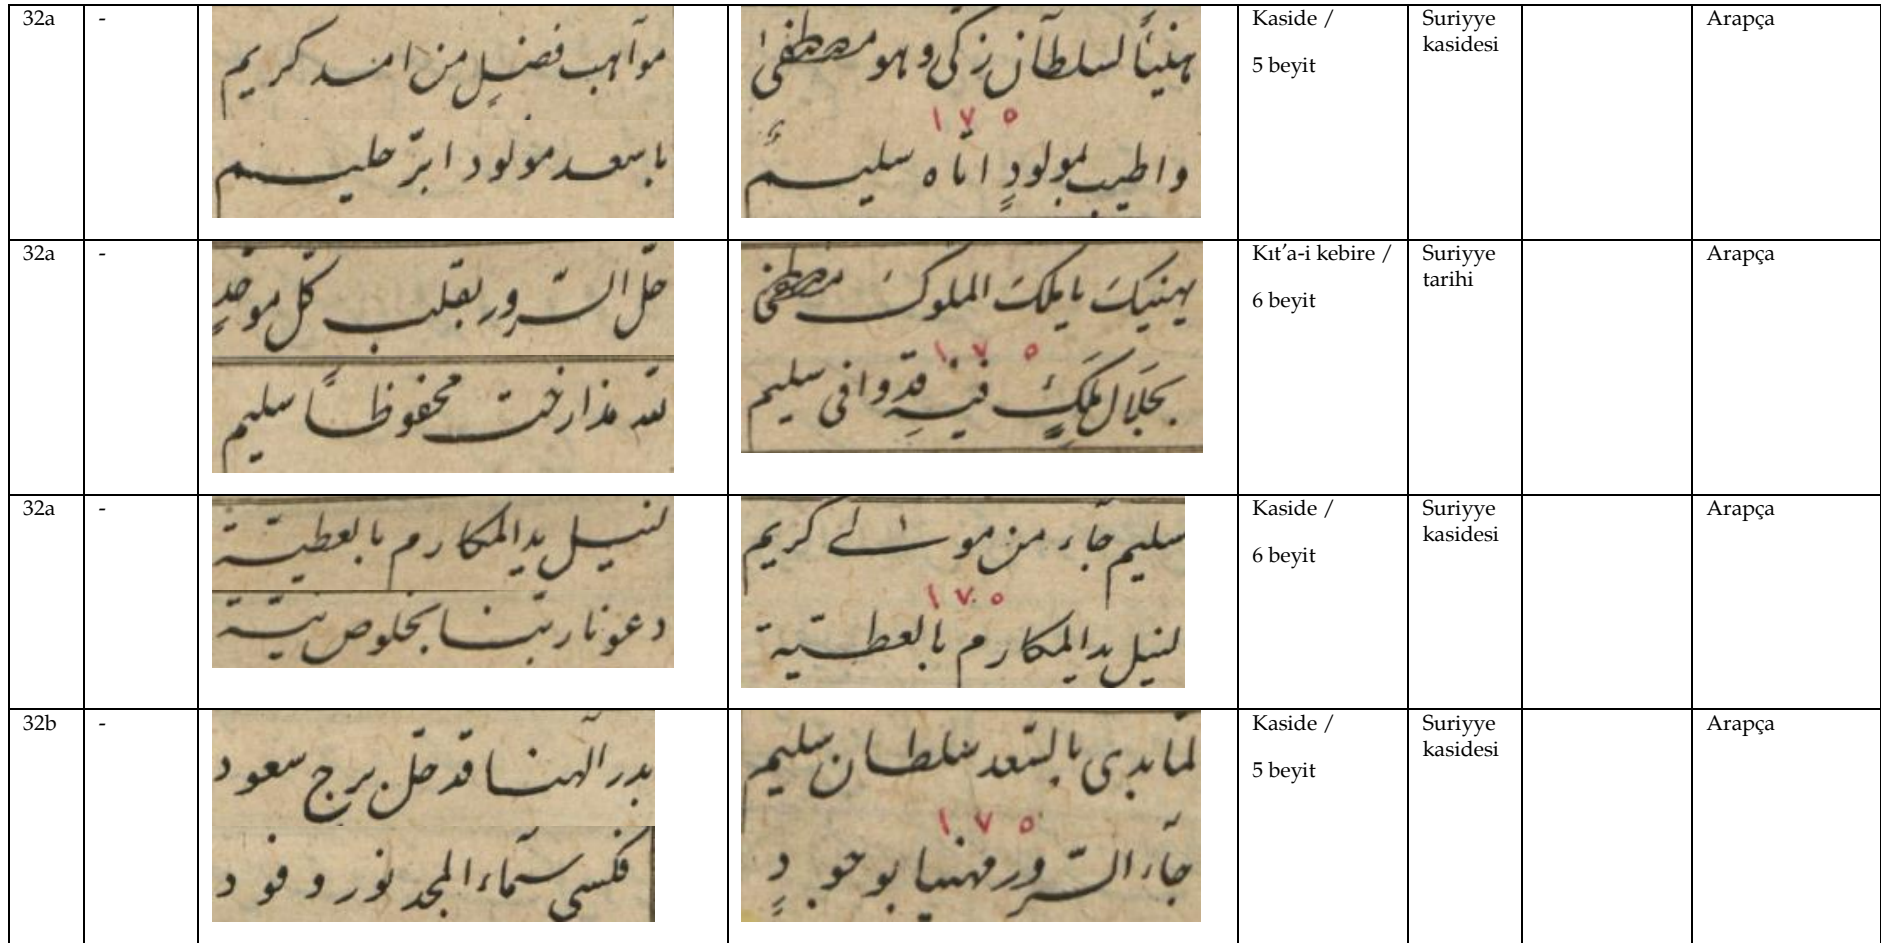 32a
-
موآهب فضيل من امند كريم
باسعد مولود ابرّ حليم
هنيئاً لسلطآن زكى وهو مصطفىٰ
١٧٥
واطيب بمولودٍ اتاه سليمٌ
Kaside /
5 beyit
Suriyye
kasidesi
Arapça
32a
-
حلّ السّرور بقلب كلّ موحّدٍ
لله مذارخت محفوظاً سليم
يهنيكَ يا ملكَ الملوك مصطفى
١٧٥
بجلال ملكٍ فيهِ قد وافى سليم
Kıt’a-i kebire /
6 beyit
Suriyye
tarihi
Arapça
32a
-
لنيل يد المكارم بالعطيّة
دعونا ربّنا بخلوص نيّة
سليم جآء من مولٰى كريم
١٧٥
لنيل يد المكارم بالعطيّة
Kaside /
6 beyit
Suriyye
kasidesi
Arapça
32b
-
بدر آلهنا قد حلّ برج سعود
فكسى سمآء المجد نور وفود
لمّا بدى بالسّعد سلطان سليم
١٧٥
جآء السّرور مهنيا بوجودٍ
Kaside /
5 beyit
Suriyye
kasidesi
Arapça